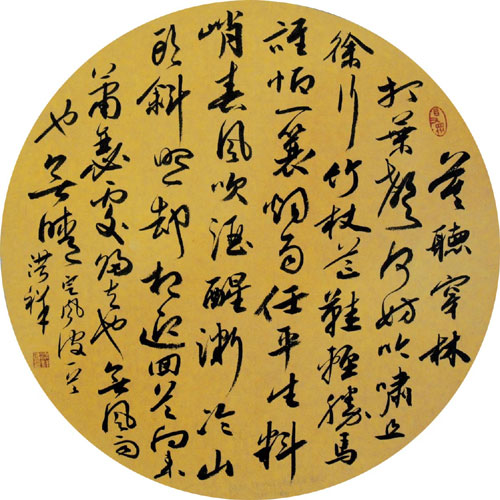 莫聽穿林
打葉聲何妨吟嘯且
徐行竹杖芒鞋輕勝馬
誰怕一蓑烟雨任平生料
峭春風吹酒醒漸冷山
頭斜照却相迎回首向来
蕭瑟處歸去也無風雨
也無晴 定風波一首
洪祥